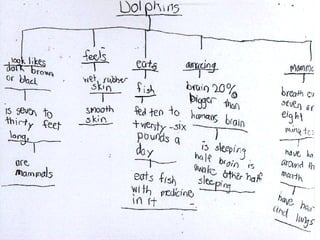 Dolphins
look likes
dark brown
or black
is seven to
thirty feet
long
are
mammals
feels
wet, rubber
skin
smooth
skin
eats
fish
fed ten to
twenty-six
pounds a
day
eats fish
with medicine
in it
amazing
brain 20%
bigger than
humans brain
is sleeping
half brain is
awake other half
sleeping
breath
seven or
eight
minutes
have
around th
marth
have hair
and lungs